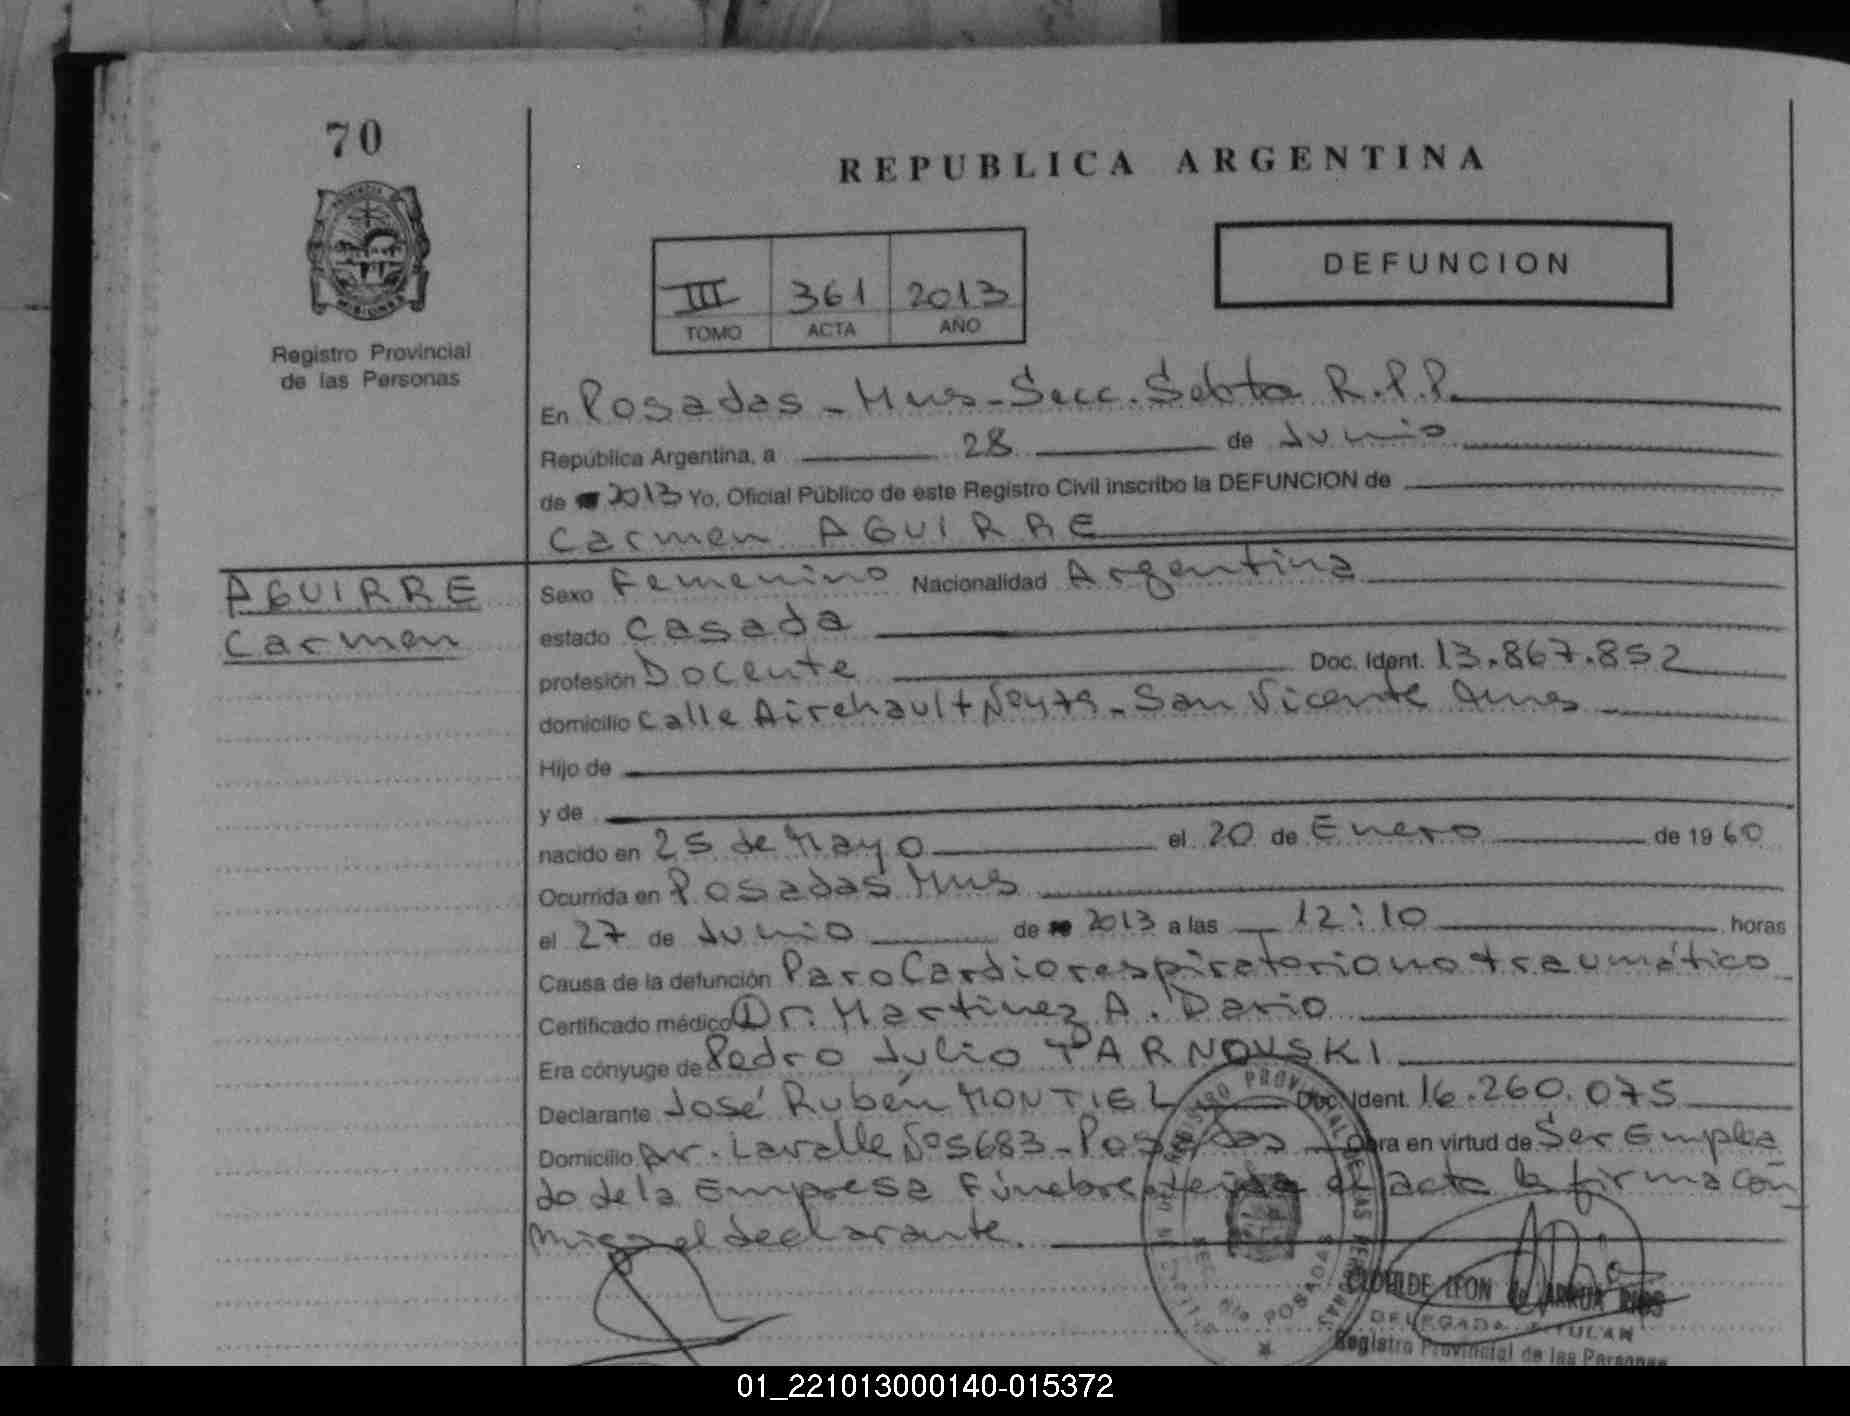 70
REPUBLICA ARGENTINA
DEFUNCION
III 361 2013
TOMO ACTA AÑO
Registro Provincial
de las Personas
En Posadas - Mnes - Secc. Sebta R.P.P.
República Argentina, a 28 de Junio
de 2013 Yo, Oficial Público de este Registro Civil inscribo la DEFUNCION de
Carmen AGUIRRE
AGUIRRE
Carmen
Sexo Femenino Nacionalidad Argentina
estado Casada
profesión Docente Doc. Ident. 13.867.852
domicilio Calle - San Vicente
Hijo de
y de
nacido en 25 de Mayo el 20 de Enero de 1960
Ocurrida en Posadas Mnes
el 27 de Junio de 2013 a las 12:10 horas
Causa de la defunción Paro Cardiorespiratorio no traumático
Certificado médico Dr. Martinez A. Dario
Era cónyuge de Pedro Julio TARNOVSKI
Declarante José Rubén MONTIEL Doc. Ident. 16.260.075
Domicilio Av. Lavalle Nº 5683 - Posadas Obra en virtud de Ser Emplea
do de la Empresa Fúnebre leida el acta la firma con
migo el declarante.
CLOTILDE LEON de ARRUA RIOS
DELEGADA TITULAR
Registro Provincial de las Personas
01_221013000140-015372